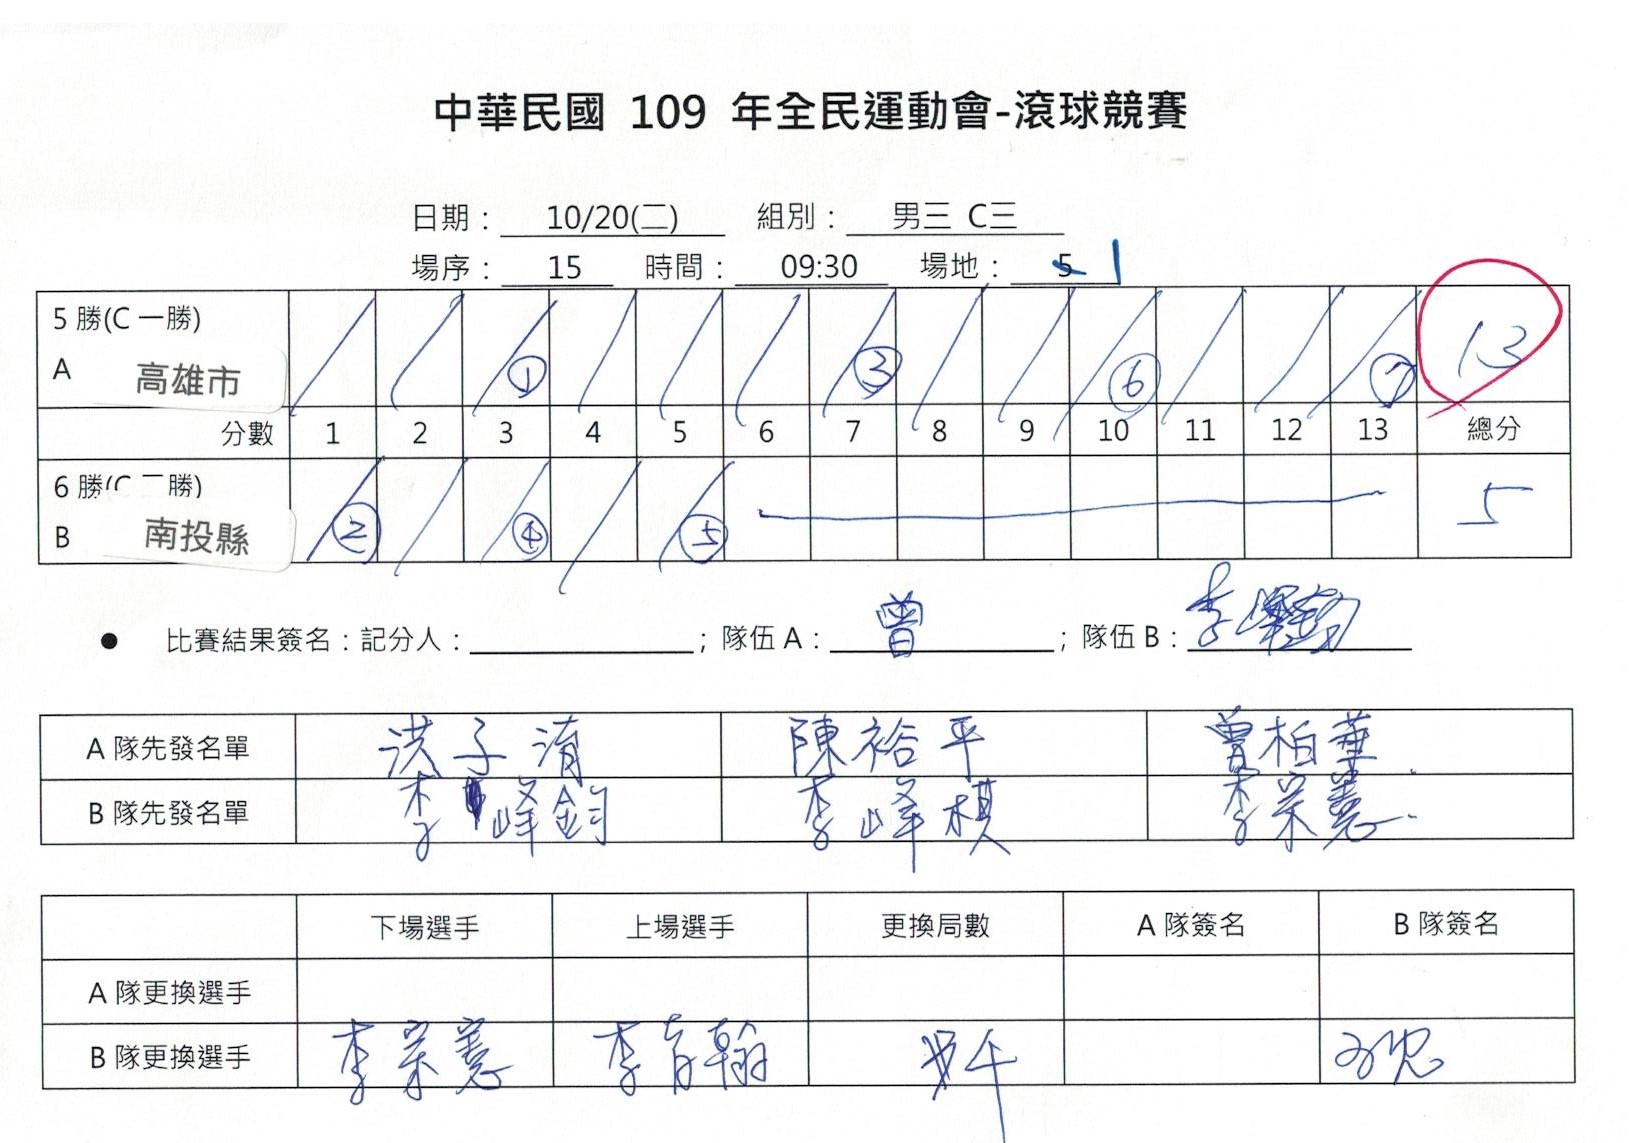 中華民國 109 年全民運動會-滾球競賽
日期： 10/20(二) 組別： 男三 C三
場序： 15 時間： 09:30 場地： 5 1
5 勝(C 一勝)
A 高雄市 ① ③ ⑥ ⑦ 13
分數 1 2 3 4 5 6 7 8 9 10 11 12 13 總分
6 勝(C 二勝)
B 南投縣 ② ④ ⑤ 5
● 比賽結果簽名：記分人： ；隊伍 A： 曾 ；隊伍 B： 李
A 隊先發名單 洪子淯 陳裕平 曾柏華
B 隊先發名單 李峰鈞 李峰棋 李宗憲
下場選手 上場選手 更換局數 A 隊簽名 B 隊簽名
A 隊更換選手
B 隊更換選手 李宗憲 李育翰